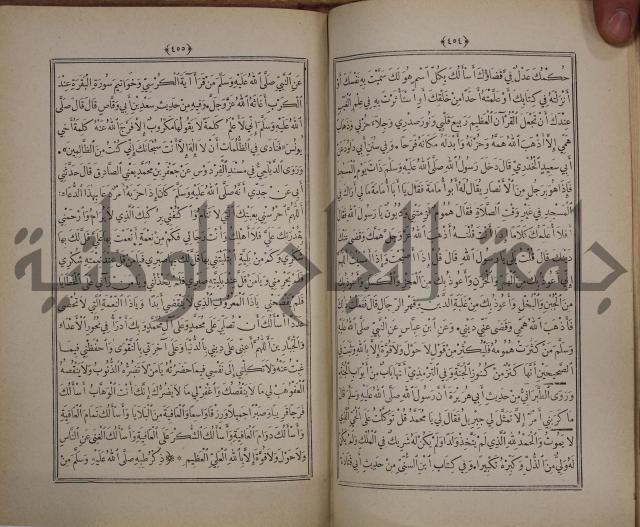 ﴿٤٥٤﴾
حكمك عدل في قضاؤك أسألك بكل اسم هو لك سميت به نفسك أو
أنزلته في كتابك أو علمته أحدا من خلقك أو استأثرت به في علم الغيب
عندك أن تجعل القرآن العظيم ربيع قلبي ونور صدري وجلاء حزني وذهاب
همي إلا أذهب الله همه وحزنه وأبدله مكانه فرحا وفي سنن أبي داود عن
أبي سعيد الخدري قال دخل رسول الله صلى الله عليه وسلم ذات يوم المسجد
فإذا هو برجل من الأنصار يقال له أبو أمامة فقال يا أبا أمامة ما لي أراك في
المسجد في غير وقت الصلاة فقال هموم لزمتني وديون يا رسول الله فقال
أفلا أعلمك كلاما إذا أنت قلته أذهب الله عز وجل همك وقضى عنك
دينك قال قلت بلى يا رسول الله قال قل إذا أصبحت وإذا أمسيت اللهم إني
أعوذ بك من الهم والحزن وأعوذ بك من العجز والكسل وأعوذ بك
من الجبن والبخل وأعوذ بك من غلبة الدين وقهر الرجال قال ففعلت
فأذهب الله همي وقضى عني ديني وعن ابن عباس عن النبي صلى الله عليه
وسلم من كثرت همومه فليكثر من قول لا حول ولا قوة إلا بالله وثبت في
الصحيحين أنها كنز من كنوز الجنة وفي الترمذي أنها باب من أبواب الجنة
وروى الطبراني من حديث أبي هريرة أن رسول الله صلى الله عليه وسلم قال
ما كربني أمر إلا تمثل لي جبريل فقال لي يا محمد قل توكلت على الحي الذي
لا يموت والحمد لله الذي لم يتخذ ولدا ولم يكن له شريك في الملك ولم يكن
له ولي من الذل وكبره تكبيرا وفي كتاب ابن السني من حديث أبي قتادة
﴿٤٥٥﴾
عن النبي صلى الله عليه وسلم من قرأ آية الكرسي وخواتيم سورة البقرة عند
الكرب أغاثه الله عز وجل وفيه من حديث سعد بن أبي وقاص قال قال صلى
الله عليه وسلم إني لأعلم كلمة لا يقولها مكروب إلا فرج الله عنه كلمة أخي
يونس فنادى في الظلمات أن لا إله إلا أنت سبحانك إني كنت من الظالمين
وروى الديلمي في مسند الفردوس عن جعفر بن محمد يعني الصادق قال حدثني
أبي عن جدي أنه صلى الله عليه وسلم كان إذا حزبه أمر دعا بهذا الدعاء
اللهم احرسني بعينك التي لا تنام واكنفني بركنك الذي لا يرام وارحمني
بقدرتك علي فلا أهلك وأنت رجائي فكم من نعمة أنعمت بها علي قل لك بها
شكري وكم من بلية ابتليتني بها قل لك بها صبري فيا من قل عند نعمته شكري
فلم يحرمني ويا من قل عند بليته صبري فلم يخذلني ويا من رآني على الخطايا
فلم يفضحني يا ذا المعروف الذي لا ينقضي أبدا ويا ذا النعمة التي لا تحصى
عددا أسألك أن تصلي على محمد وعلى آل محمد وبك أدرأ في نحور الأعداء
والجبارين اللهم أعني على ديني بالدنيا وعلى آخرتي بالتقوى واحفظني فيما
غبت عنه ولا تكلني إلى نفسي فيما حضرته يا من لا تضره الذنوب ولا ينقصه
العفو هب لي ما لا ينقصك واغفر لي ما لا يضرك إنك أنت الوهاب أسألك
فرجا قريبا وصبرا جميلا ورزقا واسعا والعافية من البلايا وأسألك تمام العافية
وأسألك دوام العافية وأسألك الشكر على العافية وأسألك الغنى عن الناس
ولا حول ولا قوة إلا بالله العلي العظيم * ذكر طبه صلى الله عليه وسلم من
جامعة النجاح الوطنية